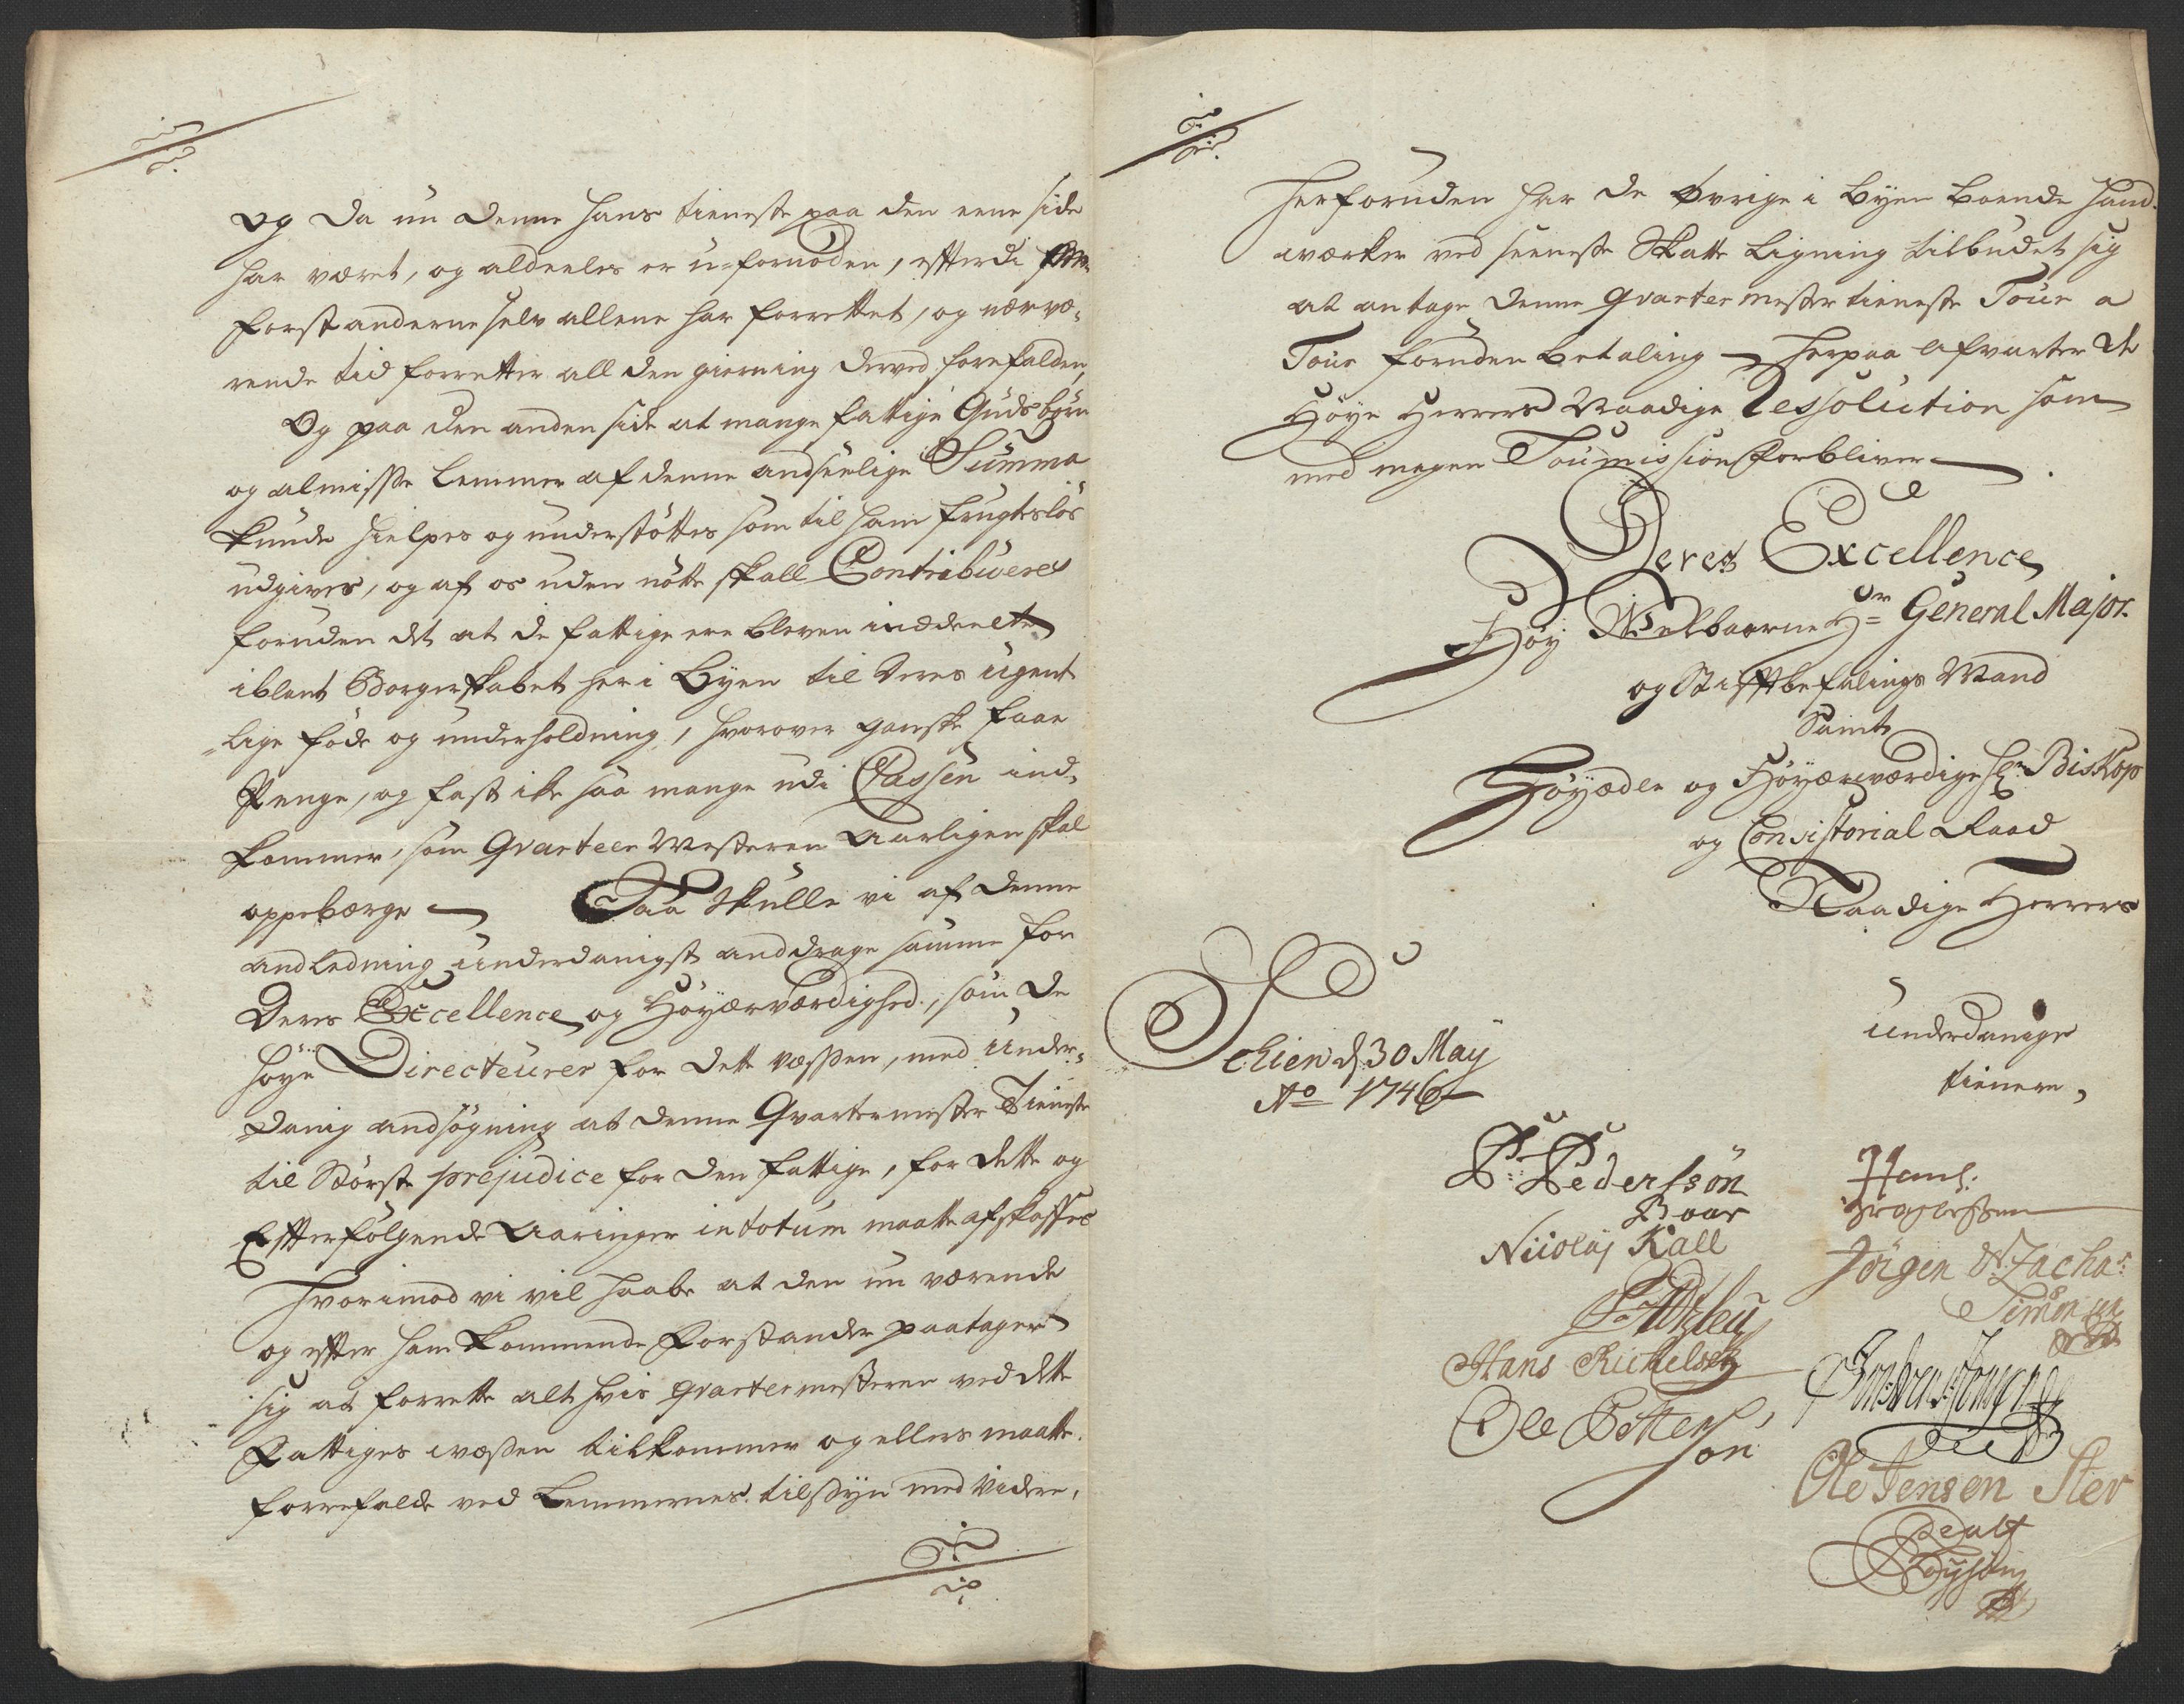 og da nu denne hans tieneste paa den eene side
har været, og aldeeles er u-fornöden, efterdi
forstanderne selv allene har forrettet, og nærvæ-
rende tid forretter all den gierning derved forefalden,
Og paa den anden side at mange fattige Guds börn
og almisse Lemmer af denne andseelige Summa
kunde hielpes og understöttes som til ham frugteslös
udgives, og af os uden nötte skall Contribueres
foruden det at de fattige ere bleven inddeelte
iblant Borgerskabet her i Byen til deres ugent
-lige föde og underholdning, hvorover ganske faae
Penge, og fast ikke saa mange udi Cassen ind-
kommer, som Qvarteer Mesteren Aarligen skal
oppebærge — Saa skulle vi af denne
andledning underdanigst anddrage samme for
Deres Excellence og Höyærværdighed, som de
höye Directeurer for dette væssen, med under-
danig andsögning at denne Qvartermester Tieneste
til Störste prejudice for den fattige, for dette og
Efterfölgende Aaringer in totum maatte afskaffes
Hvorimod vi vil haabe at den nu værende
og efter ham kommende Forstander paatager
sig at forrette alt hvis qvartermesteren ved dette
Fattiges wæsen tilkommer og ellers maatte
forrefalde ved Lemmernes tilsyn med videre,
Herforuden har de övrige i Byen boende Hand-
wærker ved seeneste Skatte Ligning tilbudet sig
at antage denne Qvartermester tieneste Tour a
Tour foruden betaling — herpaa afvarter de
Höye Herrers Naadige Ressolution som
med megen Soumission forbliver —
Deres Excellence
Höy Welbaarne Hr General Major
og Stiftbefalings Mand
Samt
Höyædle og Höyærwærdige Hr Biskop
og Consistorial Raad
Naadige Herrers
underdanige
tienere,
Schien d 30 May
Ao 1746
P: Pedersön
Boar
Nicolaj Kall
Hans
Jörgen N. Zachar
Simonsen
Hans Richelsen
Ole Petter
son
Ole Jensen Ster